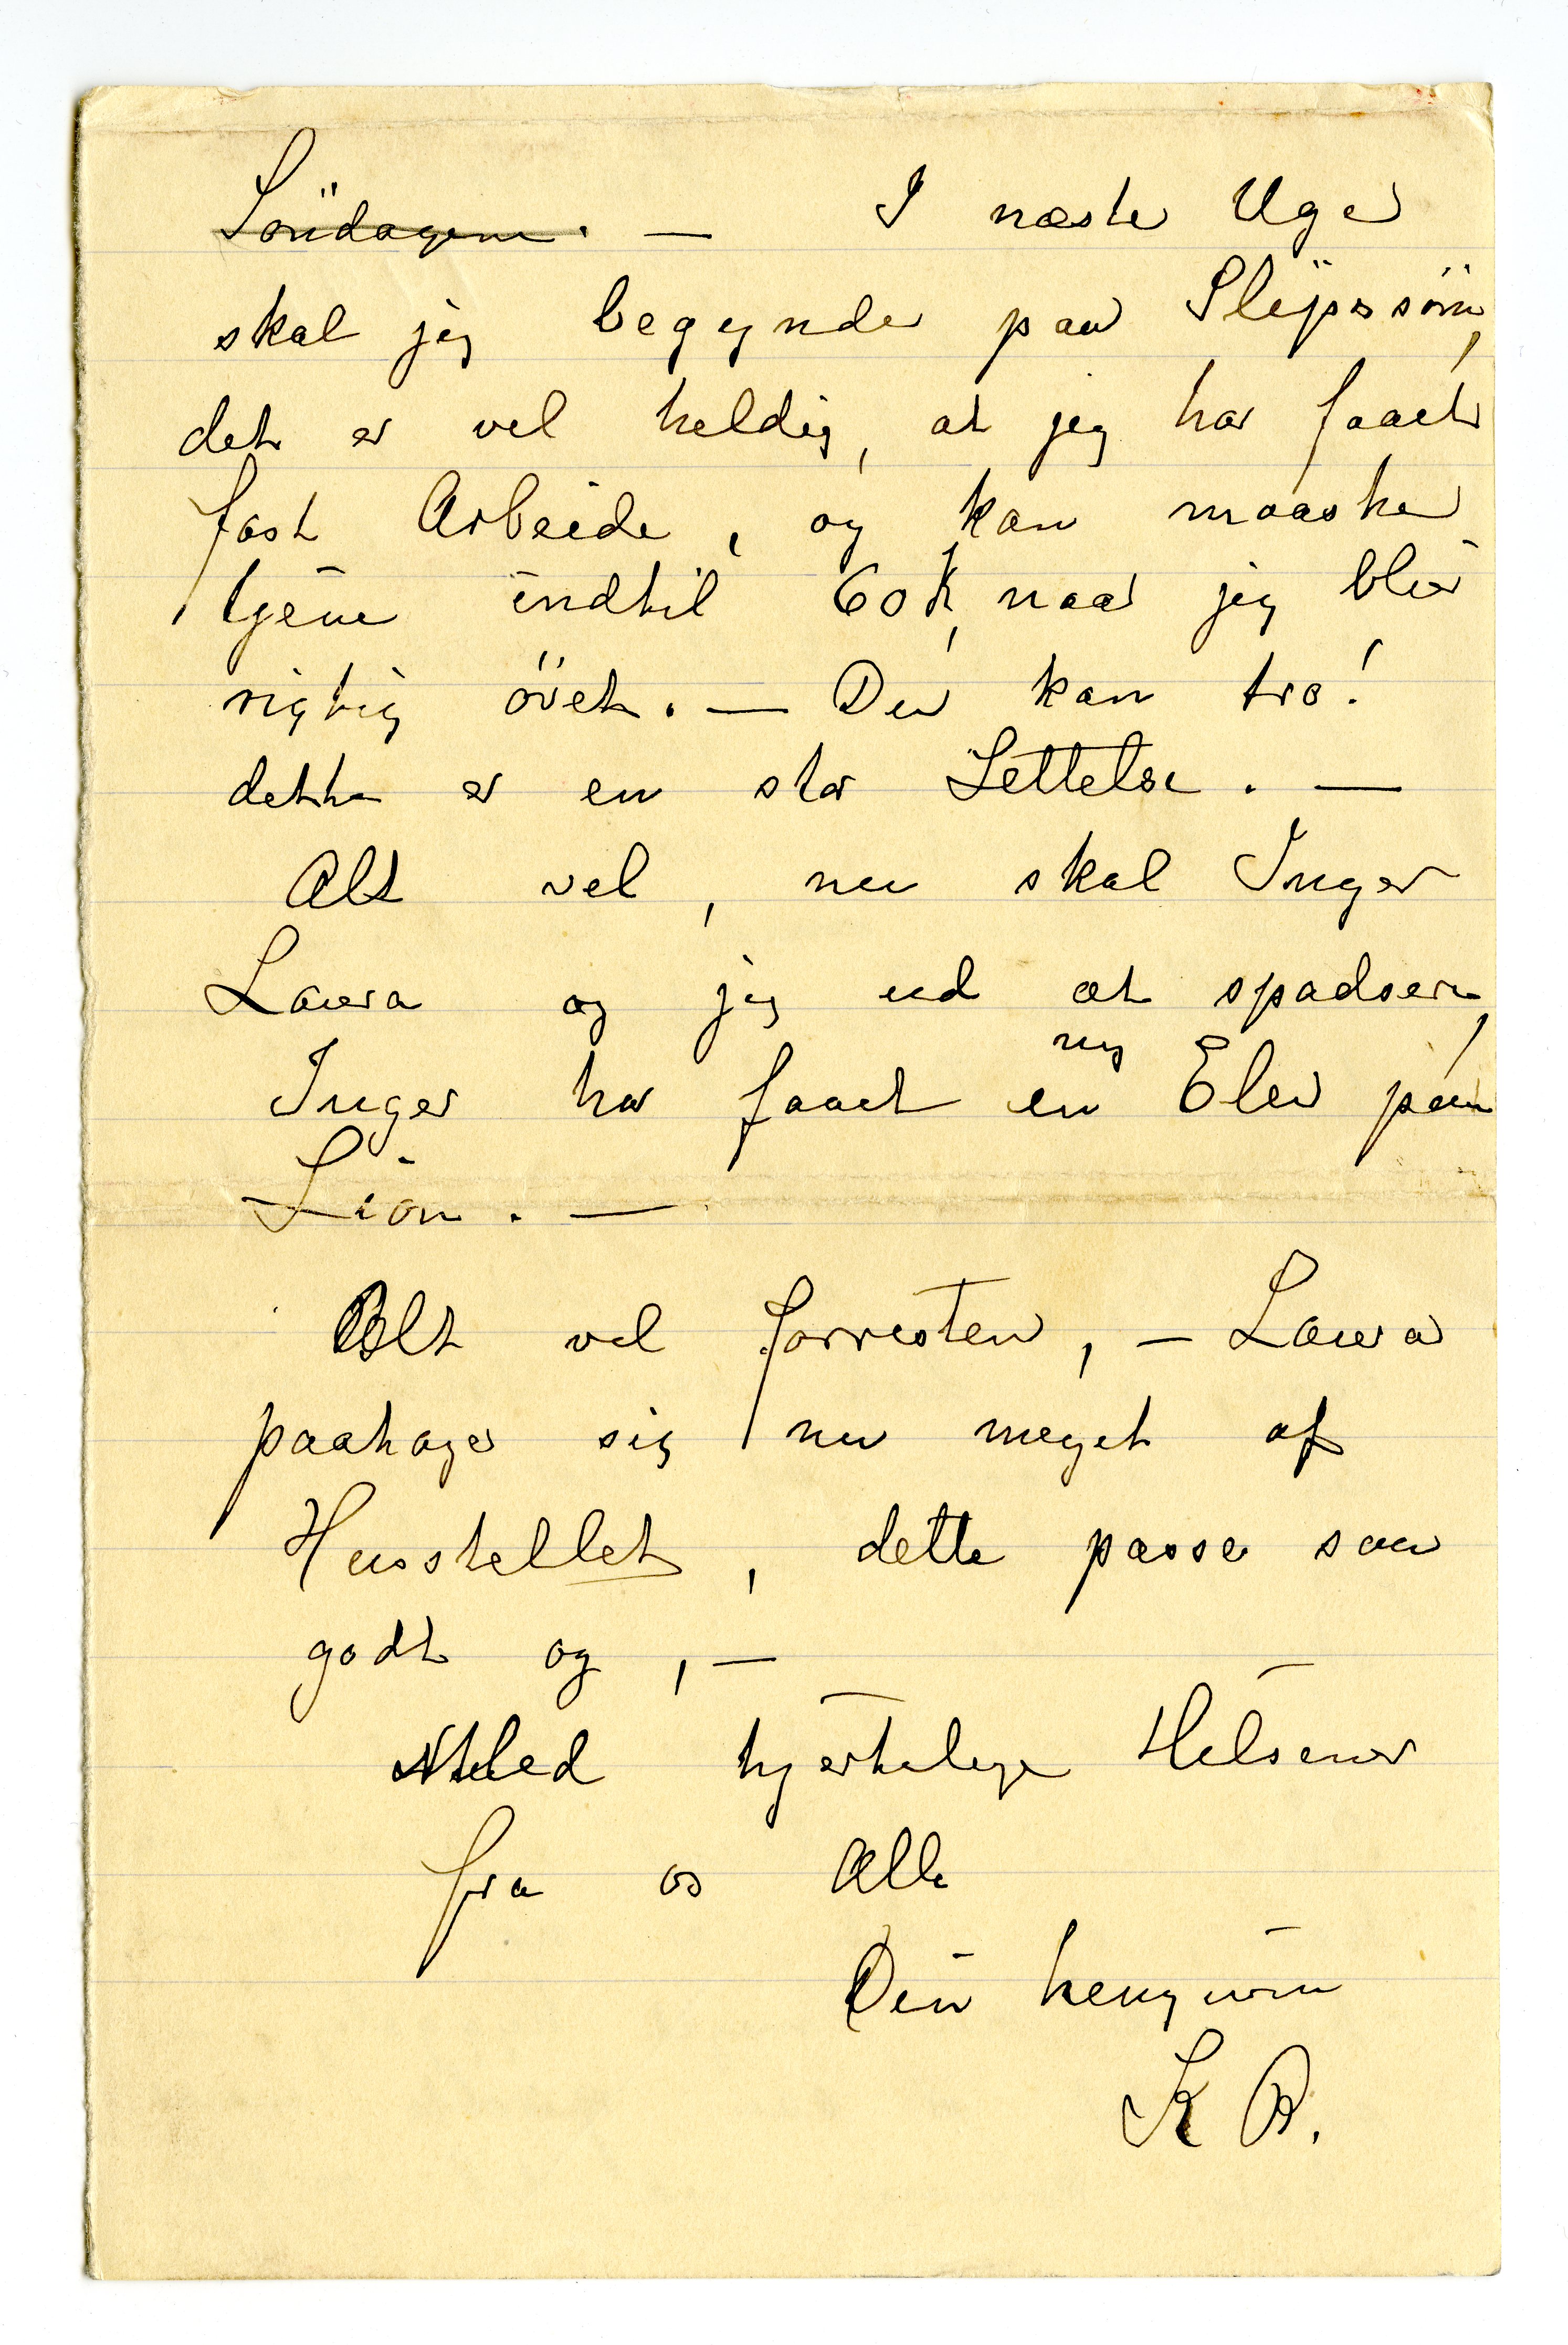 Söndagene. — I næste Uge
skal jeg begynde paa Slipssöm,
det er vel heldig, at jeg har faaet
fast Arbeide, og kan maaske
tjene indtil 60 K, naar jeg blir
rigtig övet. — Du kan tro!
dette er en stor Lettelse. —
Alt vel, nu skal Inger
Laura og jeg ud at spadsere,
Inger har faaet en ny Elev paa
Lian. —
Alt vel forresten, — Laura
paatager sig nu meget af
Husstellet, dette passer saa
godt og, —
Med hjertelige Helsener
fra os Alle
Din hengivne
K B.